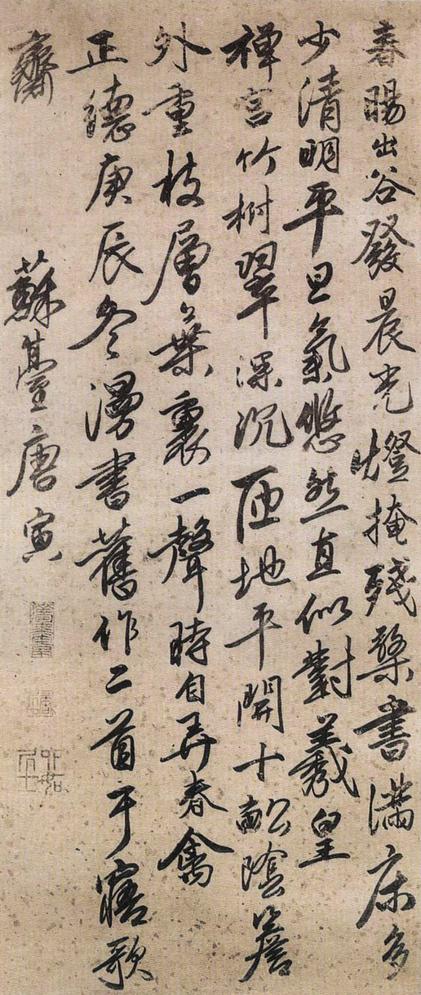 春暘出谷發晨光燈掩殘檠書滿床多
少清明平旦氣悠然直似對羲皇
禪宮竹樹翠深沉匝地平開十畝陰簷
外重枝層葉裏一聲時自弄春禽
正德庚辰冬漫書舊作二首于寤歌
齋
蘇臺唐寅